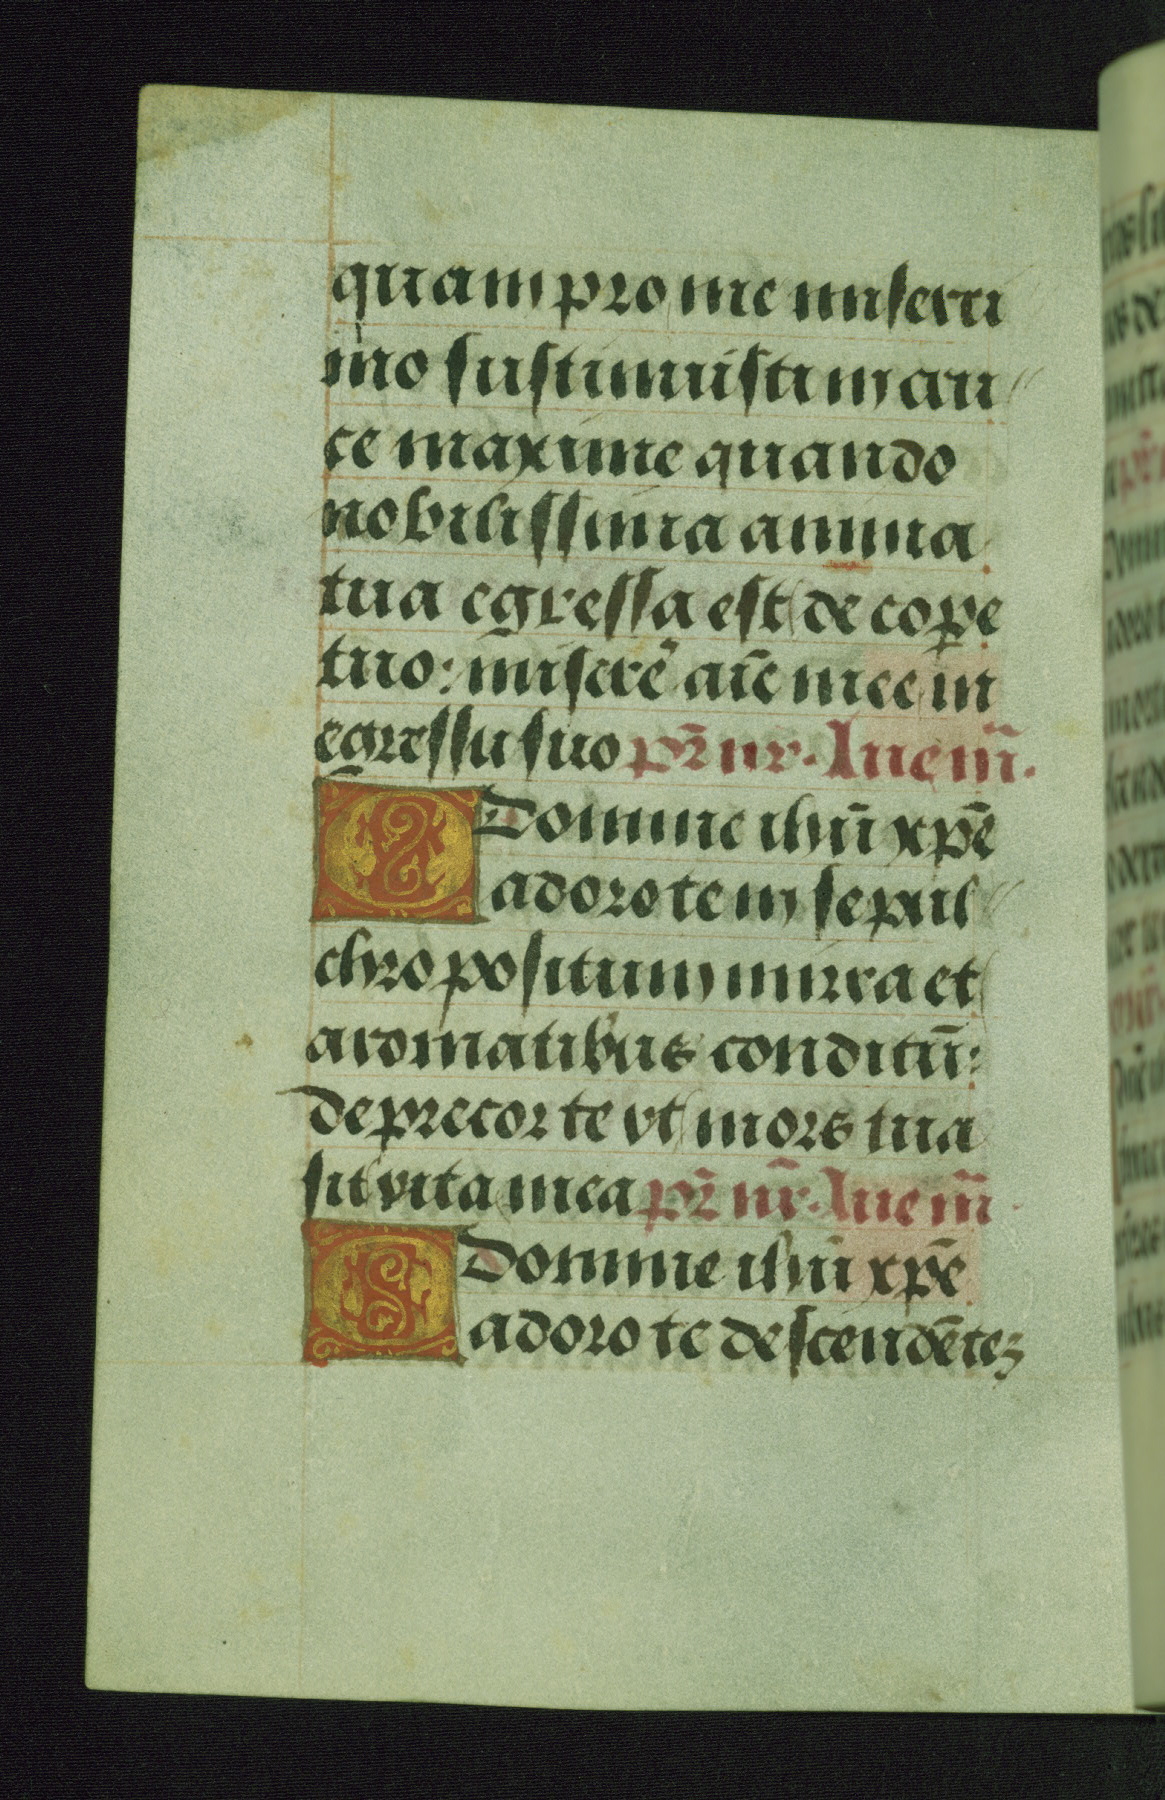 quam pro me miserri
mo sustinuisti in cru//
ce maxime quando
nobilissima anima
tua egressa est de cor̄pe
tuo: miserē aīe mee in
egressu suo pr̄ nr. Aue m̄.
O Domine ihū xp̄e
adoro te in sepul//
chro positum mirra et
aromatibus conditū:
deprecor te vt mors tua
sit vita mea pr̄ nr̄. Aue m̄.
O Domine ihū xp̄e
adoro te descendētez